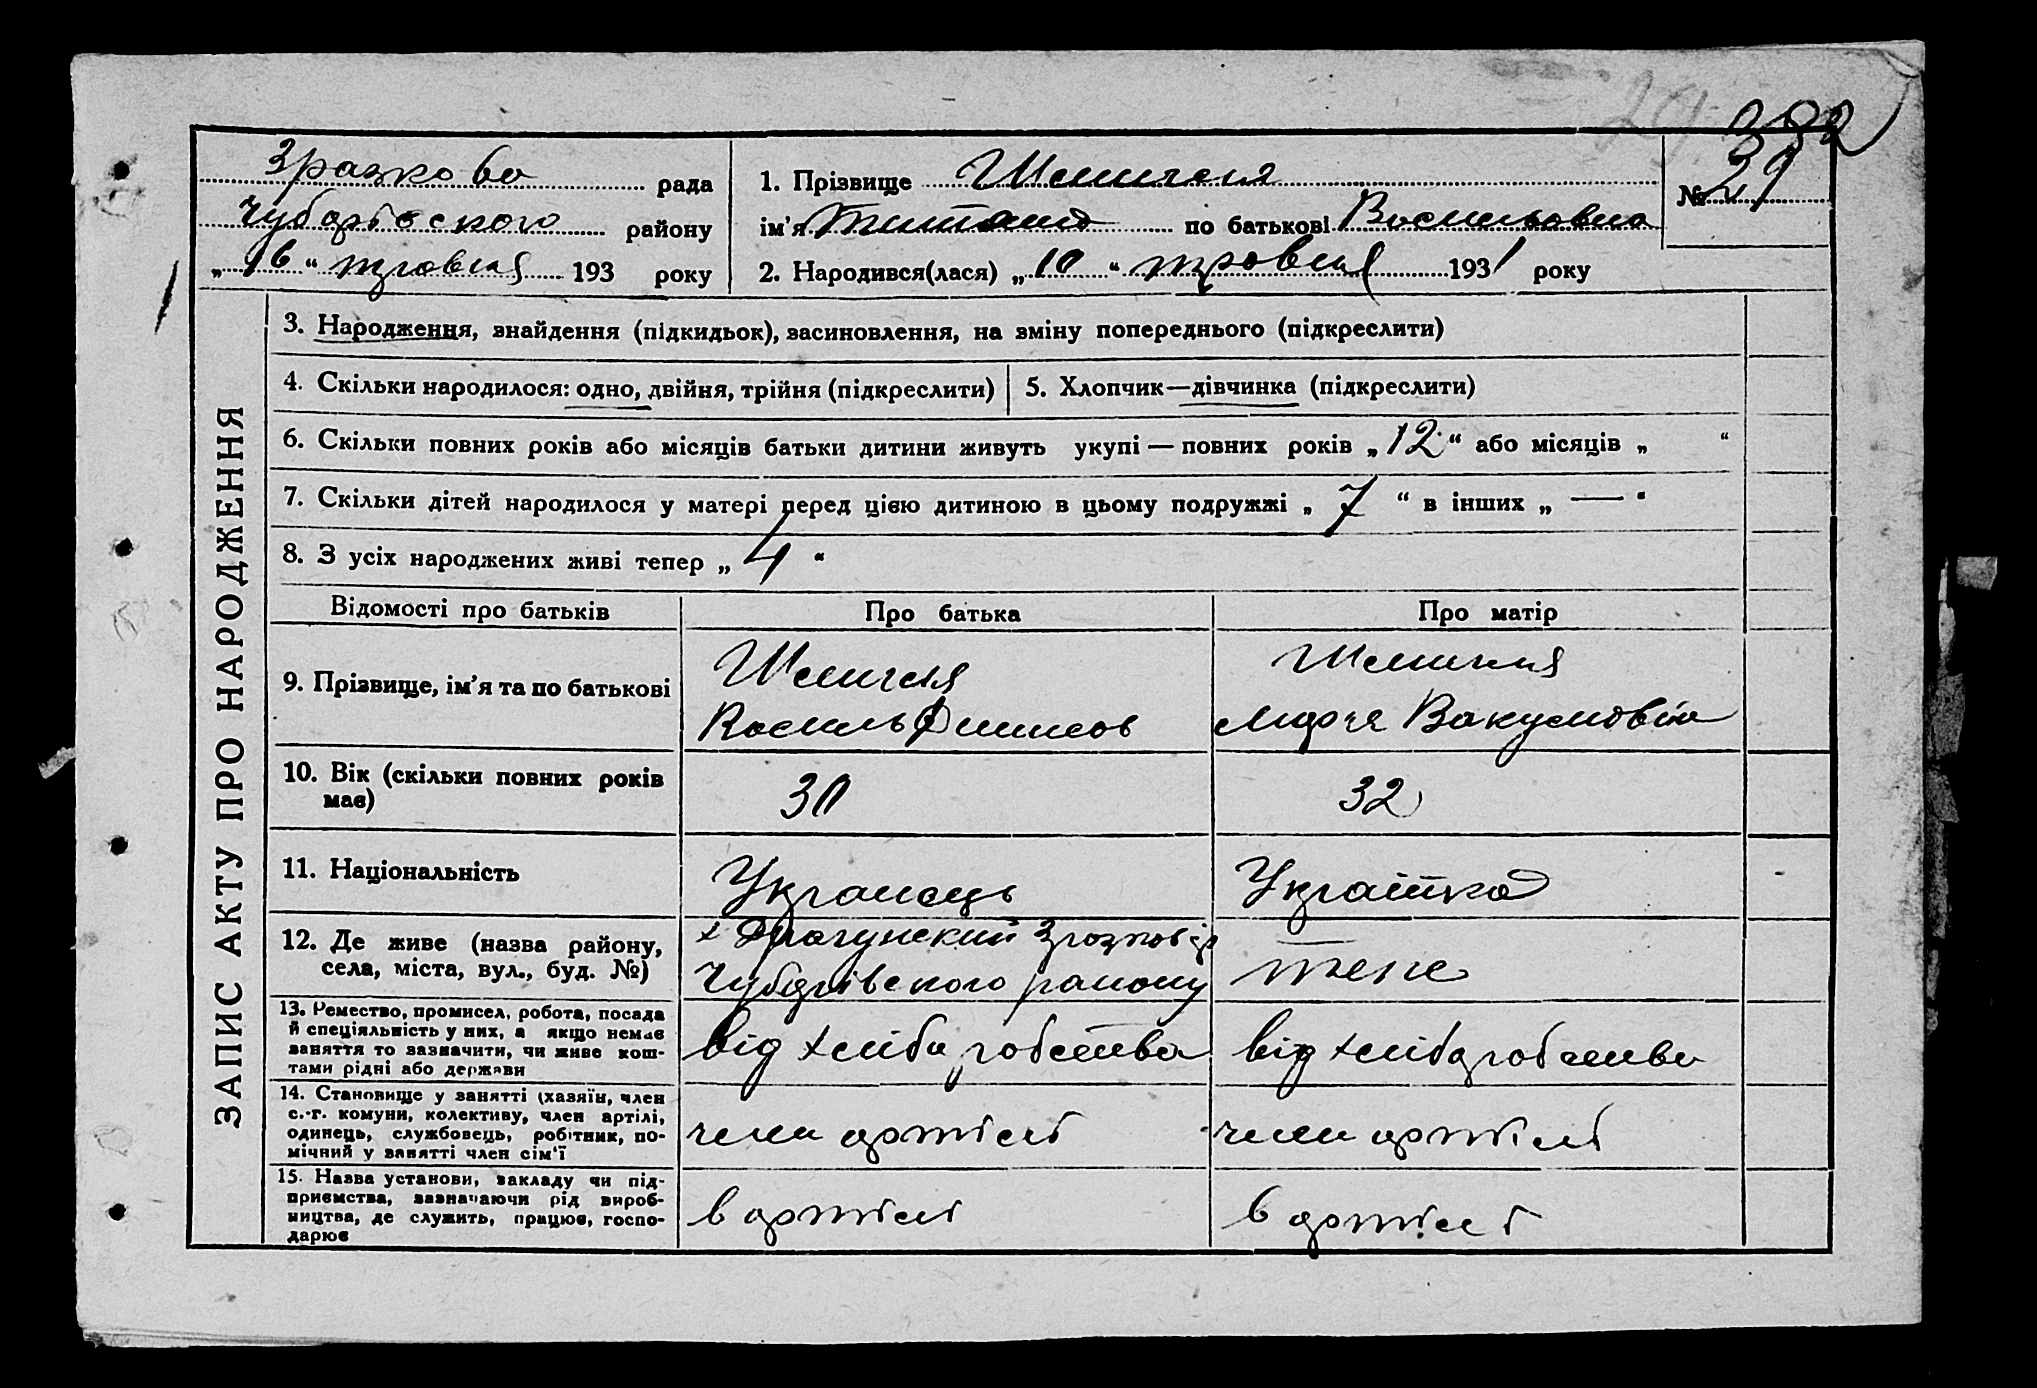 382
Зразкова рада
Чубарівского району
„ 16 “ травня 193 року
1. Прізвище Шепигеля
№ 29
ім'я по батькові Васильовна
2. Народився(лася) „ 10 “ травня 1931 року
ЗАПИС АКТУ ПРО НАРОДЖЕННЯ
3. Народження, внайдення (підкидьок), васиновлення, на вміну попереднього (підкреслити)
4. Скільки народилося: одно, двійня, трійня (підкреслити)
5. Хлопчик—дівчинка (підкреслити)
6. Скільки повних років або місяців батьки дитини живуть укупі — повних років „ 12 “ або місяців „ “
7. Скільки дітей народилося у матері перед цією дитиною в цьому подружжі „ 7 “ в інших „ — “
8. З усіх народжених живі тепер „ 4 “
Відомості про батьків
Про батька
Про матір
9. Прізвище, ім'я та по батькові
Василь
Вакумовна
10. Вік (скільки повних років
має)
30
32
11. Національність
Украінець
Украінка
12. Де живе (назва району,
села, міста, вул., буд. №)
х Драгунский
Чубарівского району
теж
13. Ремество, промисел, робота, посада
й спеціяльність у них, а якщо немає
заняття то зазначити, чи живе кош-
тами рідні або держави
від хлібаробства
від хлібаробства
14. Становище у занятті (хазяїн, член
с.-г. комуни, колективу, член артілі,
одинець, службовець, робітник, по-
мічний у занятті член сім'ї
член артілі
член артілі
15. Назва установи, закладу чи під-
приємства, зазначаючи рід вироб-
ництва, де служить, працює, госпо-
дарює
в артілі
в артілі